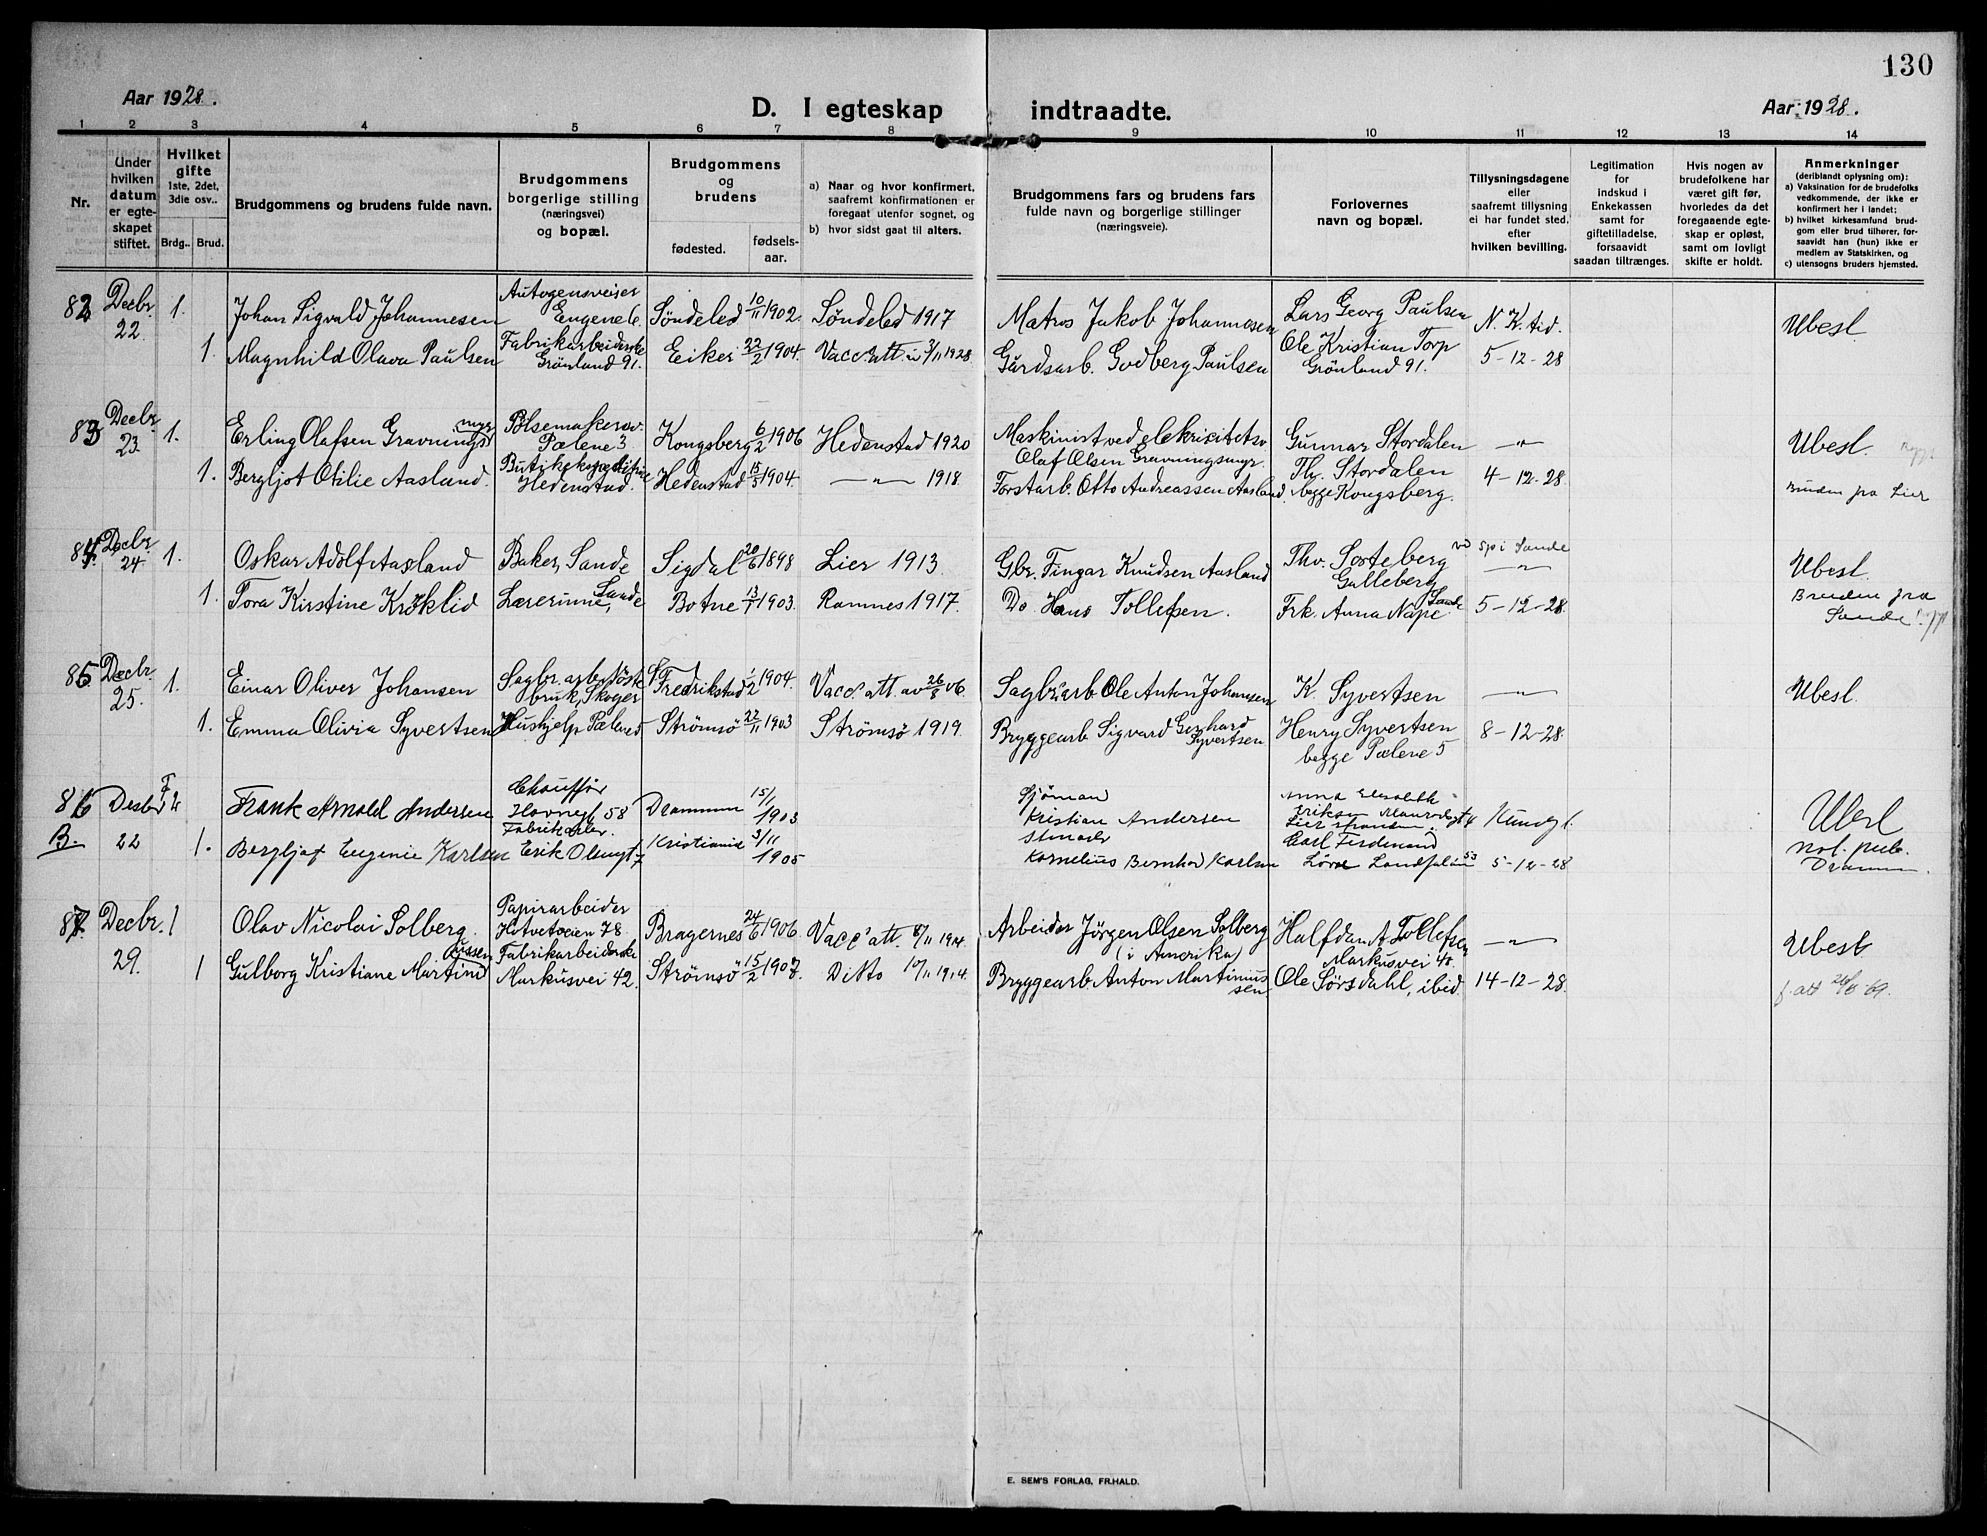 130
Aar 1928.
D. I egteskap indtraadte.
Aar 1928.
1 2 3 4 5 6 7 8 9 10 11 12 13 14
Nr.
Under hvilken datum er egteskapet stiftet.
Hvilket gifte 1ste, 2det, 3die osv..
Brdg.. Brud.
Brudgommens og brudens fulde navn.
Brudgommens borgerlige stilling (næringsvei) og bopæl.
Brudgommens og brudens
fødested. fødsels-aar.
a) Naar og hvor konfirmert, saafremt konfirmationen er foregaat utenfor sognet, og
b) hvor sidst gaat til alters.
Brudgommens fars og brudens fars fulde navn og borgerlige stillinger (næringsveie).
Forlovernes navn og bopæl.
Tillysningsdagene eller saafremt tillysning ei har fundet sted, efter hvilken bevilling.
Legitimation for indskud i Enkekassen samt for giftetilladelse, forsaavidt saadan tiltrænges.
Hvis nogen av brudefolkene har været gift før, hvorledes da det foregaaende egteskap er opløst, samt om lovligt skifte er holdt.
Anmerkninger (deriblandt oplysning om):
a) Vaksination for de brudefolks vedkommende, der ikke er konfirmert her i landet;
b) hvilket kirkesamfund brudgom eller brud tilhører, forsaavidt han (hun) ikke er medlem av Statskirken, og
c) utensogns bruders hjemsted.
82 Decbr. 22. 1. Johan Sigvald Johannesen Autogensveiser Engene 6. Søndeled 10/11 1902. Søndeled 1917 Matros Jakob Johannesen Lars Georg Paulsen N. K. tid. Ubesl.
1. Magnhild Olava Paulsen Fabrikarbeiderske Grönland 91. Eiker 22/2 1904. Vacc. att. 3/11 1928. Gårdsarb. Godberg Paulsen Ole Kristian Torp Grönland 91. 5-12-28
83 Decbr. 23. 1. Erling Olafsen Gravningsmyr Pølsemakersv. Pælene 3. Kongsberg 6/2 1906 Hedenstad 1920 Maskinist ved elekricitetsv. Olaf Olsen Gravningsmyr. Gunnar Stordalen —"— Ubesl.
1. Bergljot Otilie Aasland. Hedenstad. Hedenstad 15/5 1904. —"— 1918. Forstarb. Otto Andreassen Aasland. Th. Stordalen begge Kongsberg. 4-12-28. Bruden fra Lier
84. Decbr. 24 1. Oskar Adolf Aasland Baker, Sande Sigdal 20/6 1898 Lier 1913. Gbr. Fingar Knudsen Aasland Thv. Sorteberg Galleberg Sande —"— Ubesl.
1. Tora Kirstine Krøklid Lærerinne, Sande Botne 13/1 1903. Ramnes 1917. Do Hans Tollefsen. Frk. Anna Nape Sande 5-12-28. Bruden fra Sande
85 Decbr. 25. 1. Einar Oliver Johansen Sagbr. arb. bruk, Skoger Fredrikstad 1/2 1904. Vacc. att. av 26/8 06. Sagbr. arb Ole Anton Johansen K. Syvertsen —"— Ubesl.
1. Emma Olivia Syvertsen Hushjelp Pælene 5 Strømsø 22/11 1903 Strømsø 1919. Bryggearb Sigvard Gerhard Syvertsen Henry Syvertsen begge Pælene 5 8-12-28.
86 B. Desbr 22 Frank Arnold Andersen Chauffør Havnegt 58 Drammen 15/1 1903 Sjøman Kristian Andersen Anna Elisabeth Eriksen Ubesl not. pub. Drammen.
1. Bergljot Eugenie Karlsen Fabrikarb. Erik Olsengt 7 Kristiania 3/11 1905 Kornelius Bernhar Karlsen Carl Ferdinand 5-12-28
87. Decbr. 29. 1 Olav Nicolai Solberg. Papirarbeider Hotvetveien 78. Bragernes 24/6 1906. Vacc. att. 8/11 1914. Arbeider Jörgen Olsen Solberg (i Amerika) Halfdan A Tollefsen Markusvei 48. —"— Ubesl.
1 Gulborg Kristiane Martinussen Fabrikarbeiderske Markusvei 42. Strømsø 15/2 1907. Ditto 10/11 1914. Bryggearb Anton Martiniussen Ole Sörsdahl, ibid. 14-12-28. f. att 69.
E. SEM'S FORLAG, FR.HALD.